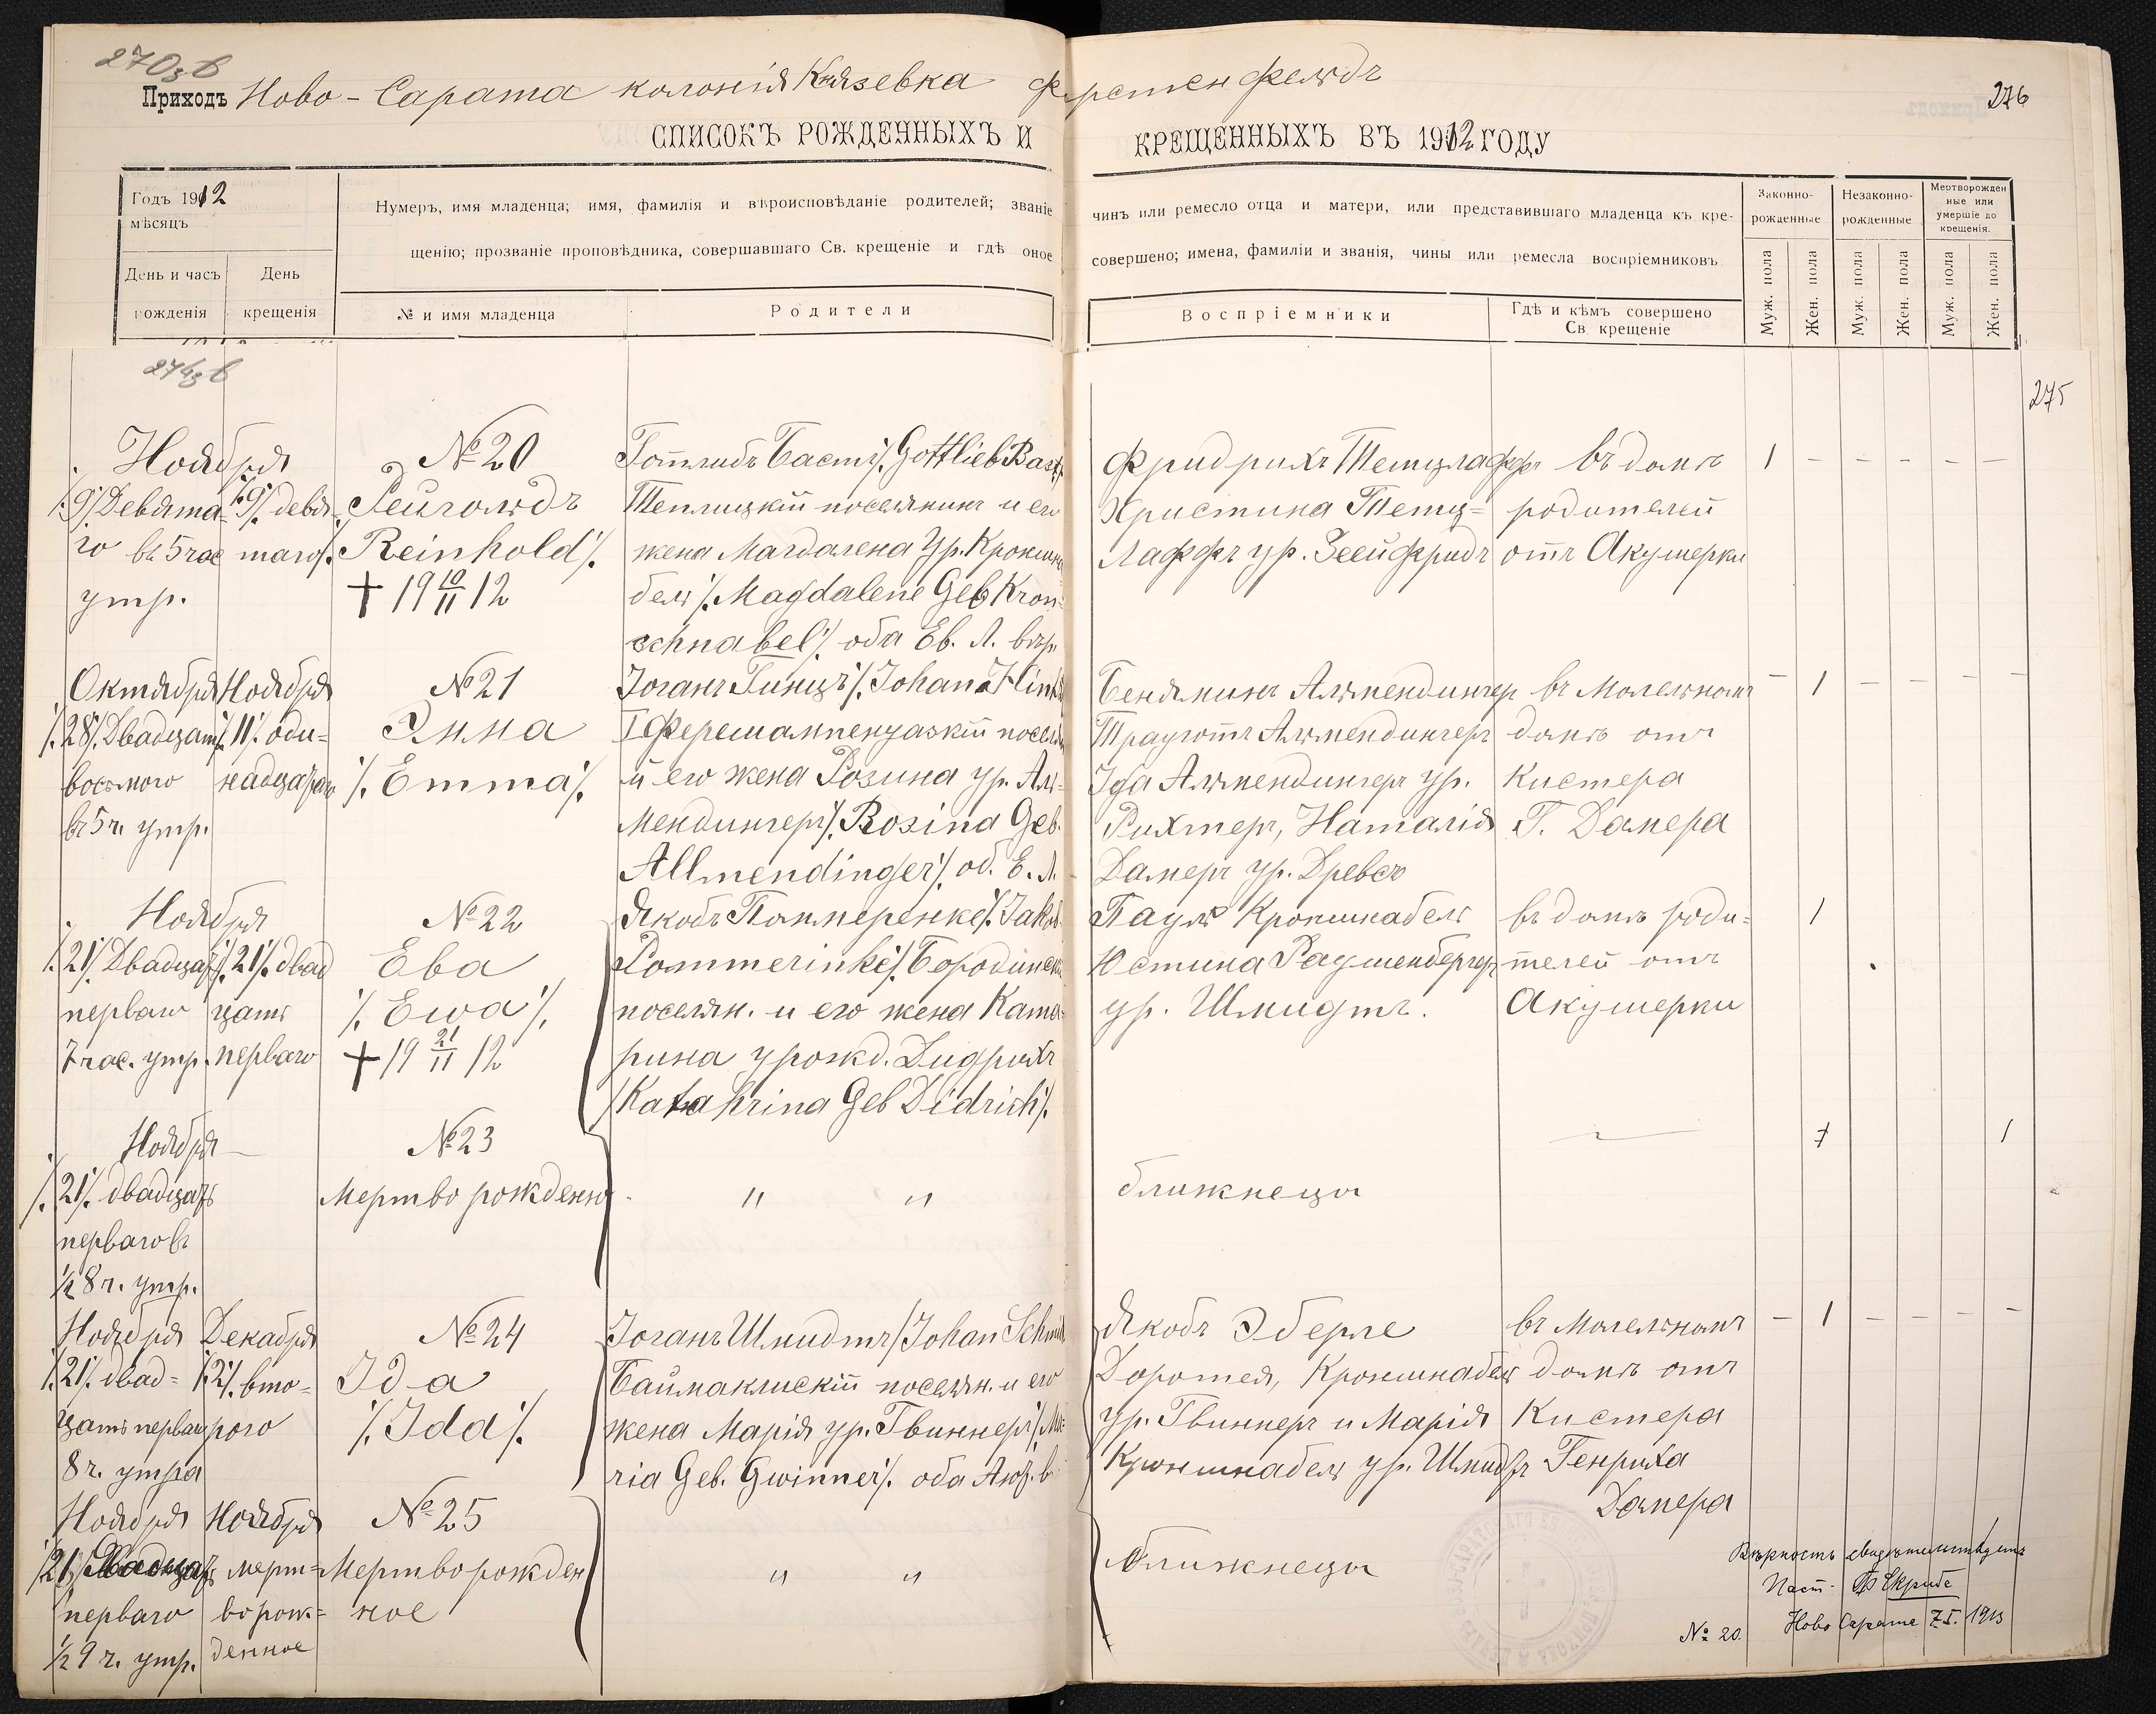 270 зв
Приходъ Ново-Сарата колонія Князевка Ферстенфельдъ
276
СПИСОКЪ РОЖДЕННЫХЪ И КРЕЩЕННЫХЪ ВЪ 1912 ГОДУ
Годъ 1912
мѣсяцъ
День и часъ рожденія
День крещенія
Нумеръ, имя младенца; имя, фамилія и вѣроисповѣданіе родителей; званіе чинъ или ремесло отца и матери, или представившаго младенца къ кре-
щенію; прозваніе проповѣдника, совершавшаго Св. крещеніе и гдѣ оное совершено; имена, фамиліи и званія, чины или ремесла воспріемниковъ
№ и имя младенца
Родители
Воспріемники
Гдѣ и кѣмъ совершено
Св. крещеніе
Законно-
рожденные
Незаконно-
рожденные
Мертворожден
ные или
умершіе до
крещенія.
Муж. пола
Жен. пола
Муж. пола
Жен. пола
Муж. пола
Жен. пола
274 зв
275
Ноября
9 Девята-
го въ 5 час
утр.
9 девя-
таго
№ 20
Рейгольдъ
Reinhold
† 19 10/11 12
Готлибъ Бастъ Gottlieb Bast
Теплицкій поселянинъ и его
жена Магдалена ур. Кроншна-
бель Magdalene Geb Kron-
schnabel оба Ев. Л. вѣр.
Фридрихъ Тетцлаффъ
Христина Тетц-
лаффъ ур. Зейфридъ
въ домѣ
родителей
отъ Акушерки
1 - - - - -
Октября
28 Двадцать
восьмого
въ 5 ч. утр.
Ноября
11 оди-
надцатаго
№ 21
Эмма
Emma
Іоганъ Гинцъ Johan Hinz
Ферешампенуазкій поселян
и его жена Розина ур. Аль-
мендингеръ Rosina Geb.
Allmendinger об. Е. Л.
Беньяминъ Альмендингер
Трауготъ Альмендингеръ
Ида Альмендингеръ ур.
Рихтеръ, Наталія
Дамеръ ур. Древсъ
въ Молельномъ
домѣ отъ
Кистера
Г. Дамера
- 1 - - - -
Ноября
21 Двадцать
перваго
7 час. утр.
21 двад
цать
перваго
№ 22
Ева
Ewa
† 19 21/11 12
Якобъ Поммеренке Jakob
Pommerinke Бородинск
поселян. и его жена Ката-
рина урожд. Дидрихъ
Katahrina Geb Didrich
Пауль Кроншнабель
Юстина Раушенбергеръ
ур. Шмидтъ.
въ домѣ роди-
телей отъ
Акушерки
1
Ноября
21 двадцать
перваго въ
1/2 8 ч. утр.
№ 23
Мертворожденно
" "
близнецы
1
Ноября
21 двад-
цать перваго
8 ч. утра
Декабря
2 вто-
рого
№ 24
Ида
Ida
Іоганъ Шмидтъ Johan Schmidt
Баймаклискій поселян. и его
жена Марія ур. Гвиннеръ Ma-
ria Geb. Gwinner оба Лют. в
Якобъ Эберле
Доротея, Кроншнабель
ур. Гвиннеръ и Марія
Кроншнабель ур. Шмидтъ
въ Молельномъ
домѣ отъ
Кистера
Генриха
Дамера
- 1 - - - -
Ноября
21 Двадцать
перваго
1/2 9 ч. утр.
Ноября
мерт-
ворож-
денное
№ 25
Мертворожден
ное
" "
близнецы
1
Вѣрность свидѣтельствуетъ
Паст.
Ново Сарата 7.I. 1913
№ 20.